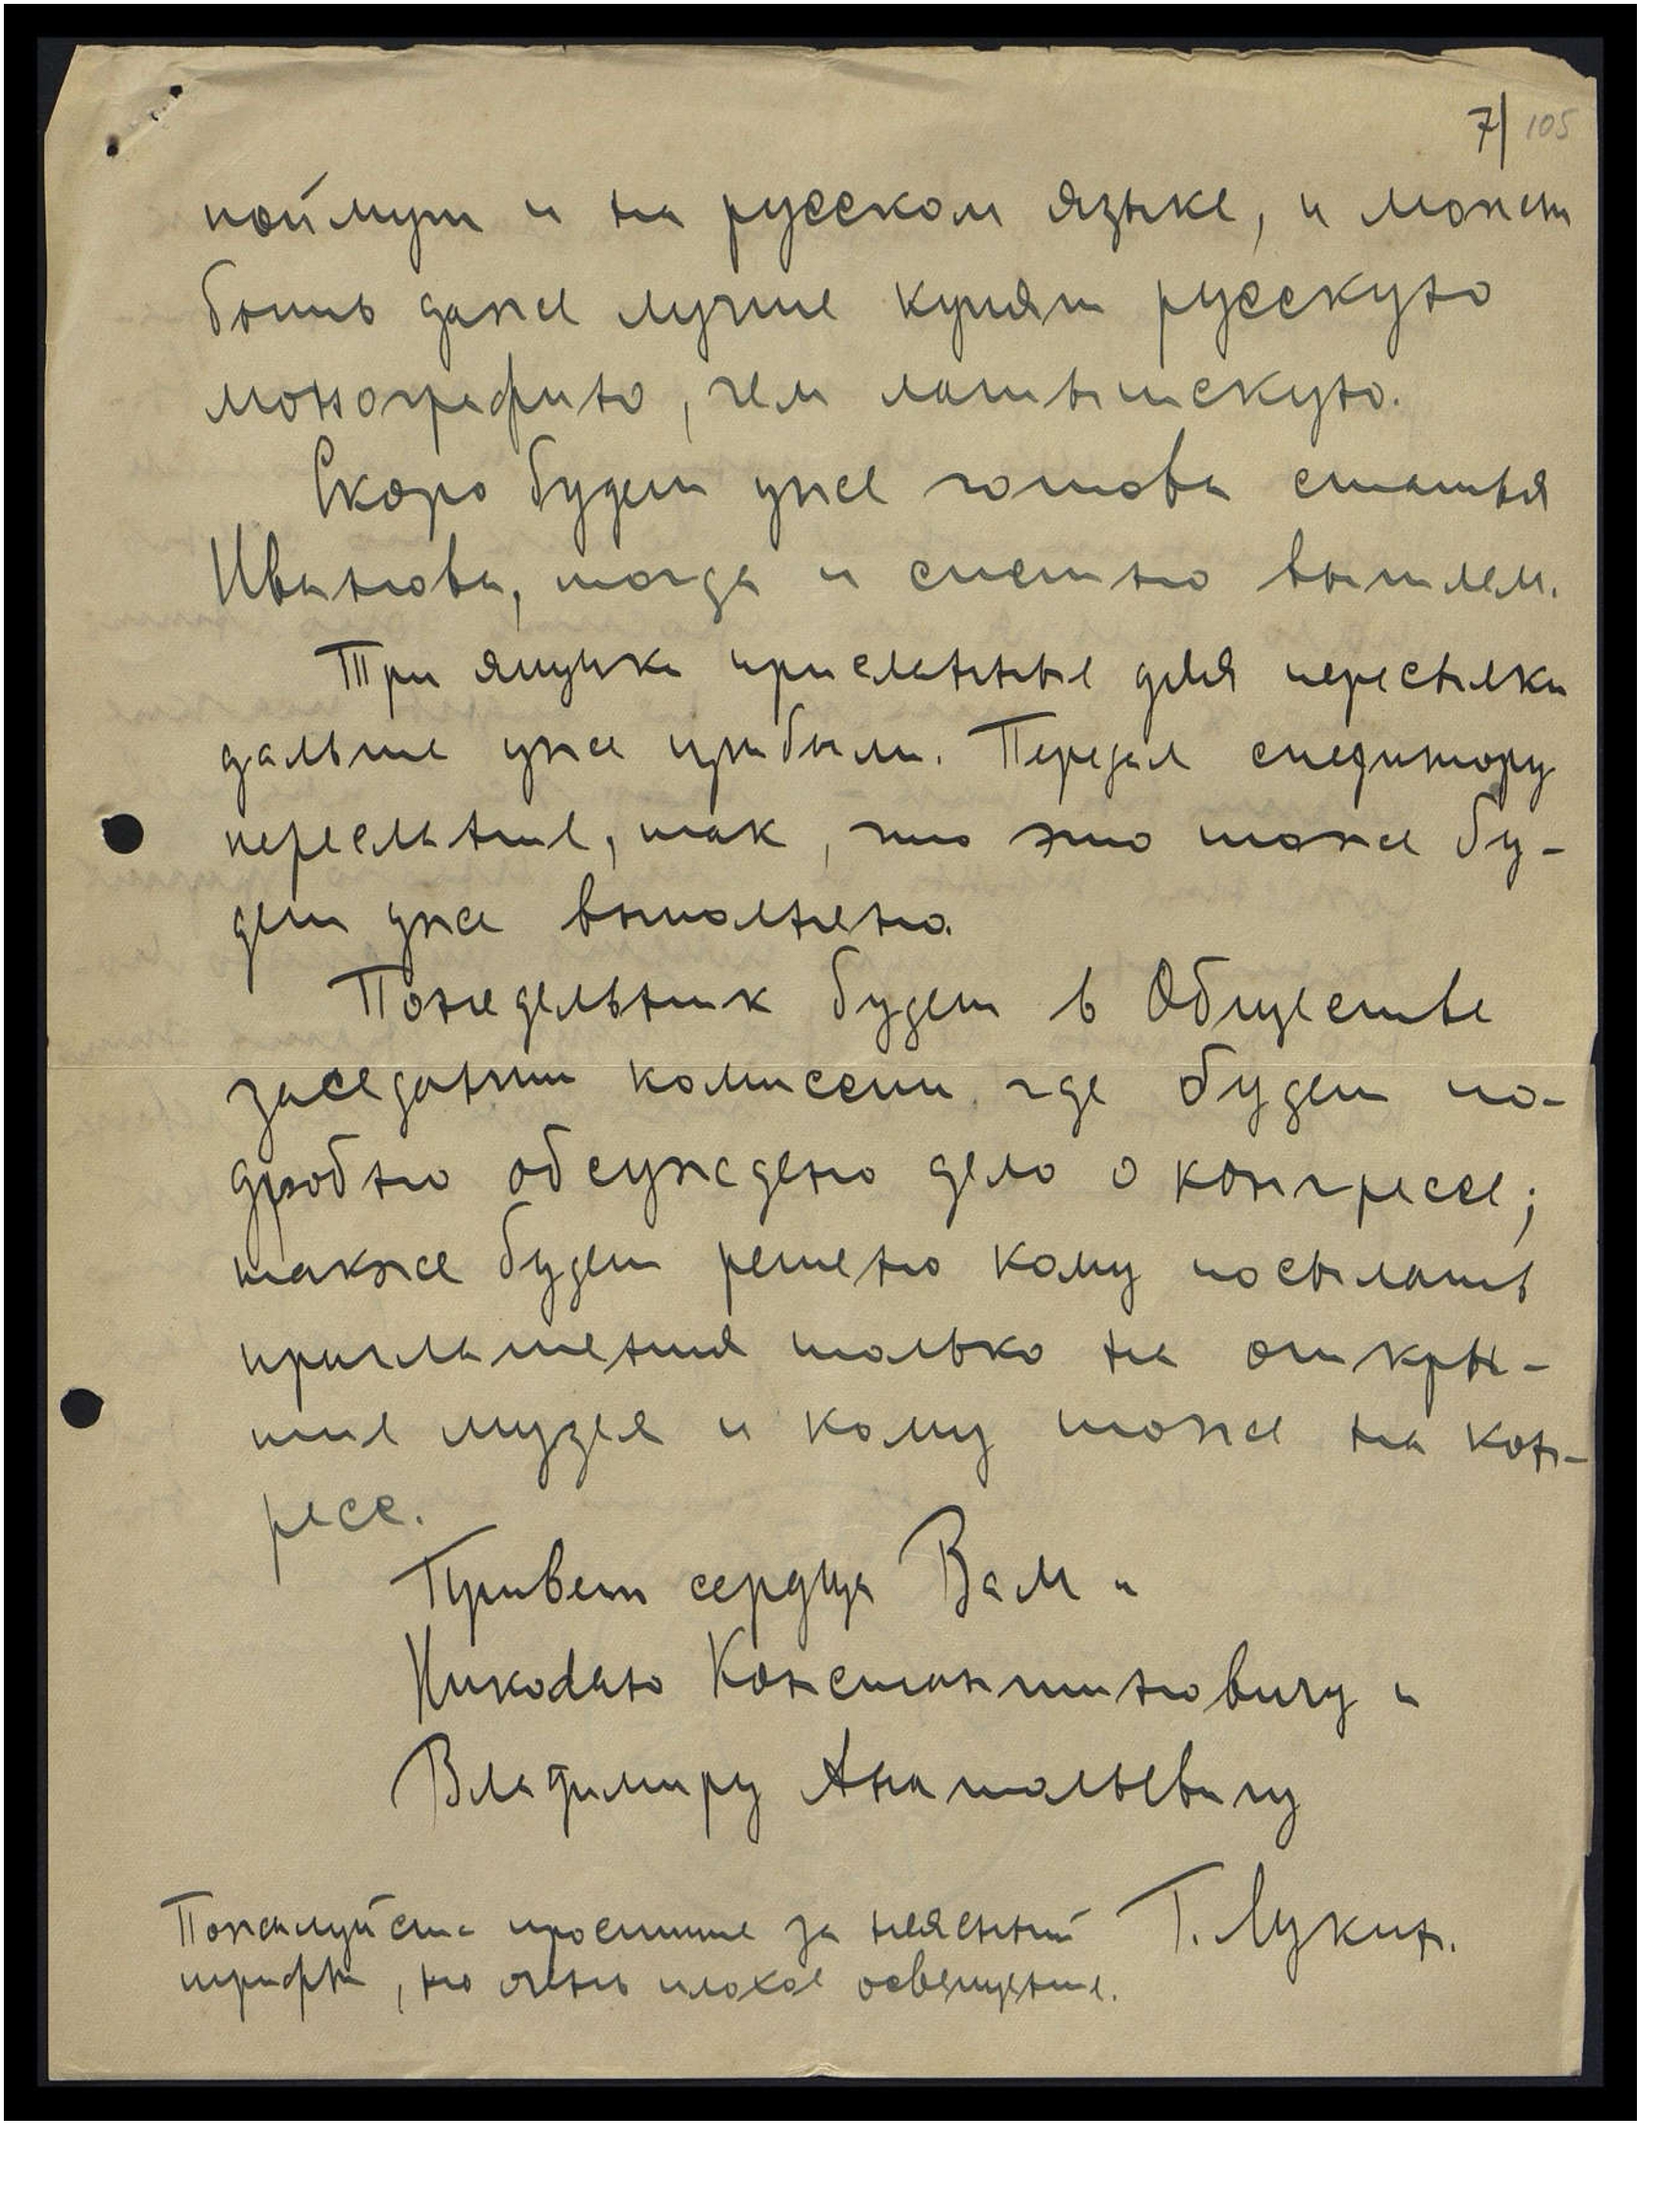 7/ 105
поймут и на русском языке, и может
быть даже лучше купят русскую
монографию, чем латышскую.
Скоро будет уже готова статья
Иванова, тогда и спешно вышлем.
Три ящика присланные для пересылки
дальше уже прибыли. Передал спедитору
пересылание, так, что это тоже бу-
дет уже выполнено.
Понедельник будет в Обществе
заседании комиссии где будет по-
дробно обсуждено дело о конгрессе;
также будет решено кому посылать
приглашения только на откры-
тие музея и кому тоже на кон-
ресс.
Привет сердца Вам и
Николаю Константиновичу и
Владимиру Анатольевичу
Г. Лукин.
Пожалуйста простите за неясный
шрифт, но очень плохое освещение.